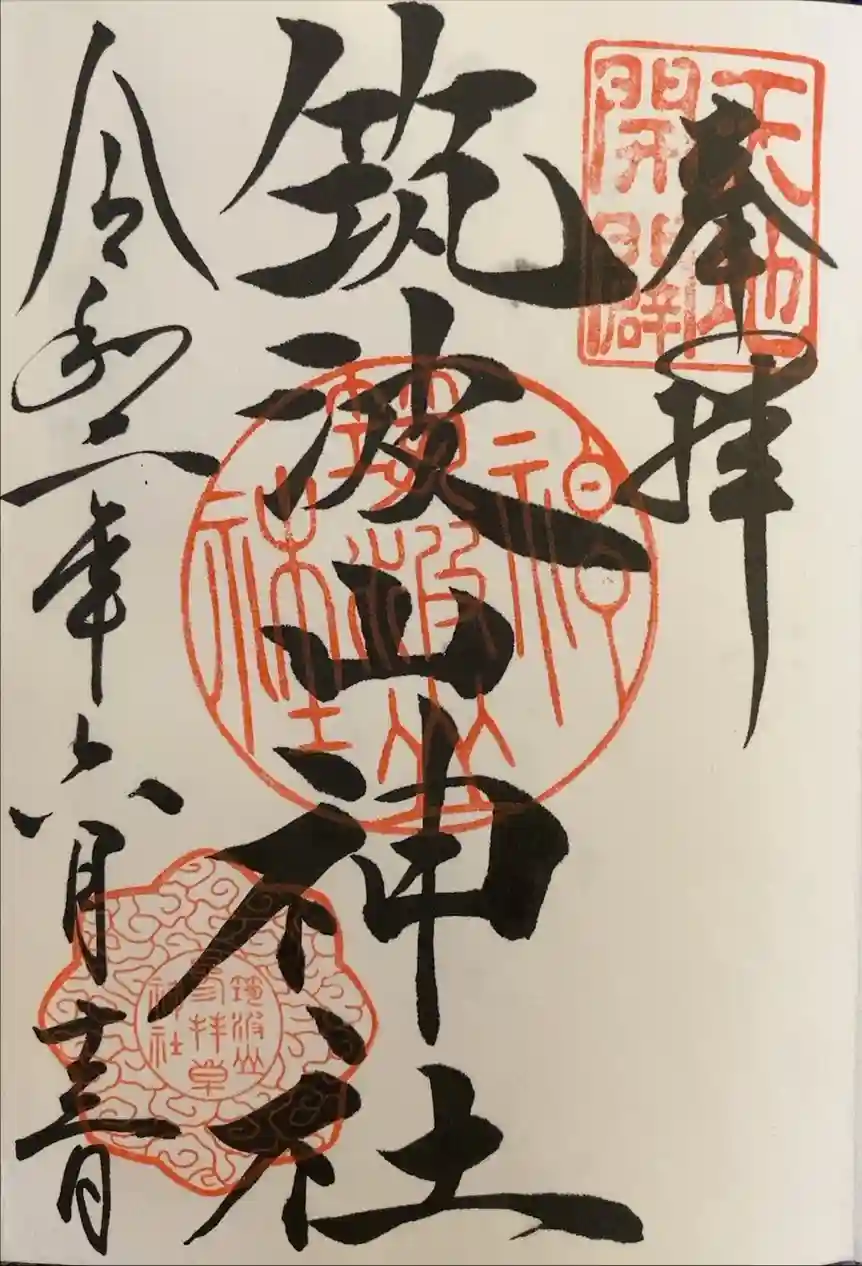 天地開闢
奉拝
筑波山神社
筑波山神社
令和二年六月十三日
筑波山
参拝章
神社